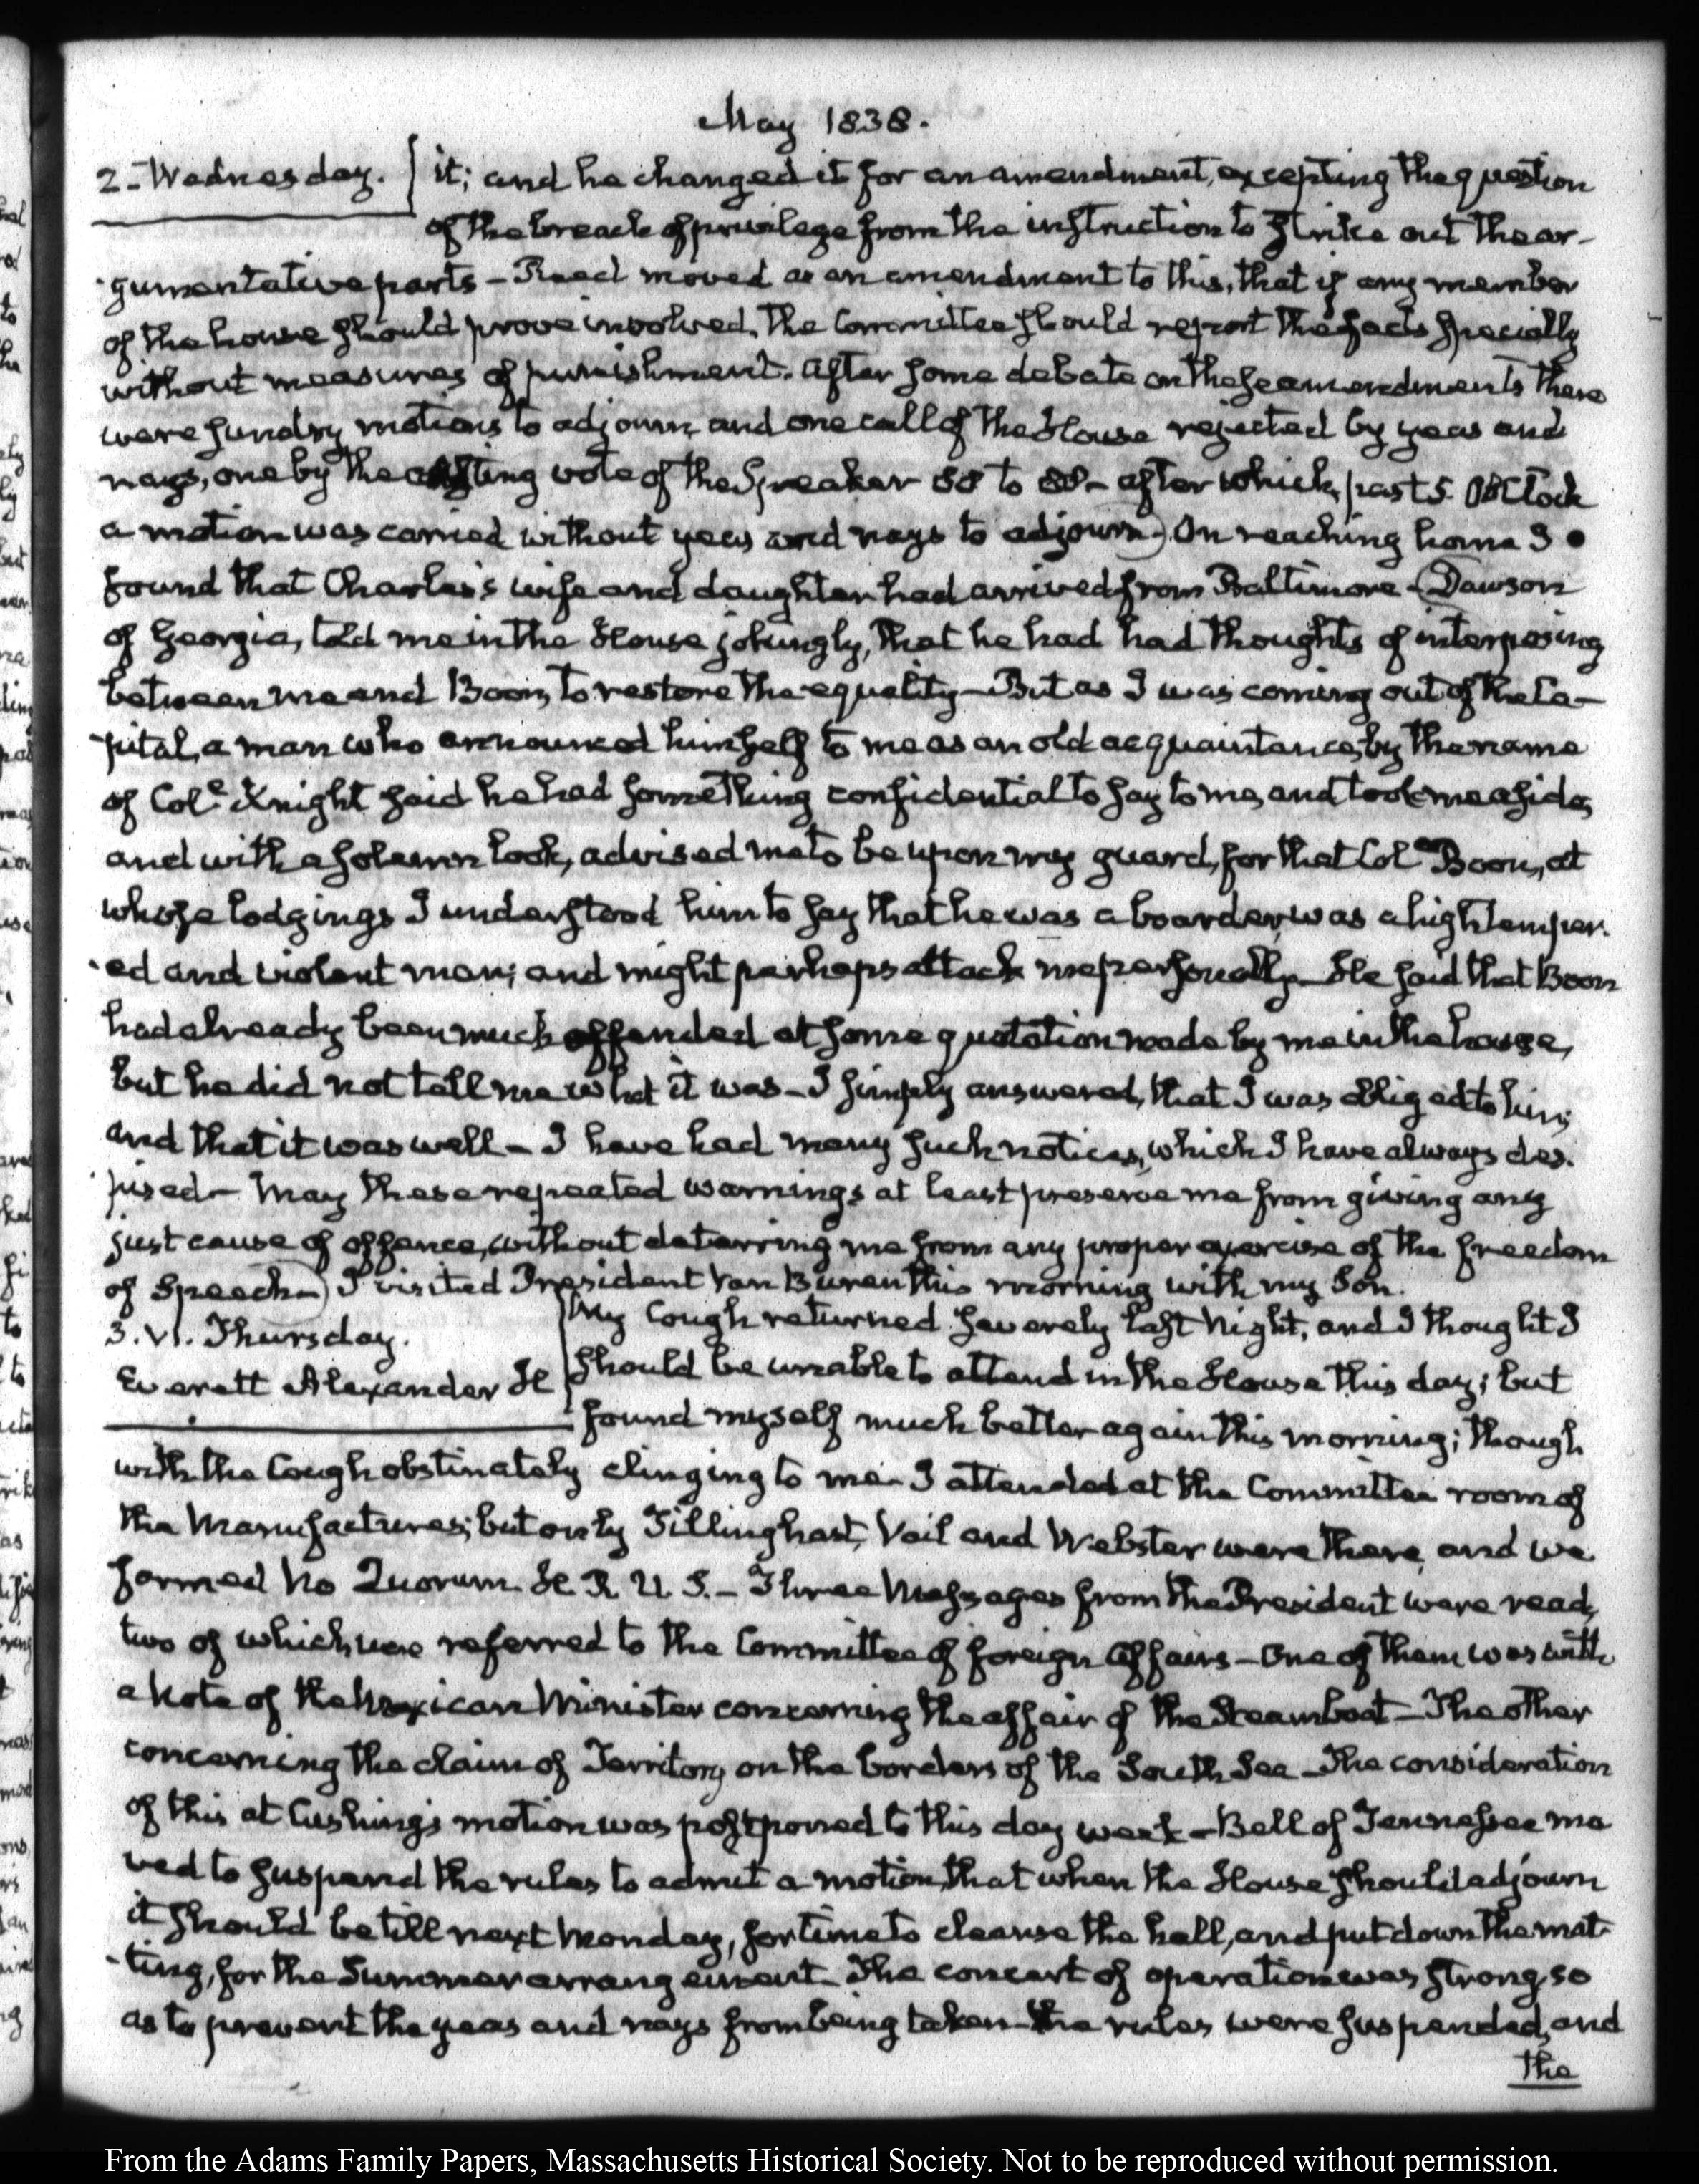 May 1838.
2. Wednesday. it; and he changed it for an amendment, excepting the question
of the breach of privilege from the instruction to strike out the ar-
gumentative parts – Reed moved as an amendment to this, that if any member
of the house should prove involved, the Committee should report the facts specially
without measures of punishment. After some debate on these amendments there
were sundry motions to adjourn, and one call of the House rejected by yeas and
nays, one by the casting vote of the Speaker 88 to 88 – after which, past 5. O'Clock
a motion was carried without yeas and nays to adjourn) On reaching home I
found that Charles's wife and daughter had arrived from Baltimore – (Dawson
of Georgia, told me in the House jokingly, that he had had thoughts of interposing
between me and Boon, to restore the equality – But as I was coming out of the Ca-
-pital, a man who announced himself to me as an old acquaintance, by the name
of Col.l Knight said he had something confidential to say to me, and took me aside,
and with a solemn look, advised me to be upon my guard, for that Col.l Boon, at
whose lodgings I understood him to say that he was a boarder, was a high temper-
-ed and violent man; and might perhaps attack me personally – He said that Boon
had already been much offended at some quotation made by me in the house,
but he did not tell me what it was – I simply answered, that I was obliged to him;
and that it was well – I have had many such notices, which I have always des-
pised – May these repeated warnings at least preserve me from giving any
just cause of offence, without deterring me from any proper exercise of the freedom
of Speech –) I visited President Van Buren this morning with my Son.
3. VI. Thursday. My Cough returned severely last Night, and I thought I
Everett Alexander H should be unable to attend in the House this day; but
found myself much better again this morning; though
with the Cough obstinately clinging to me – I attended at the Committee room of
the Manufactures; but only Tillinghast, Vail and Webster were there, and we
formed no Quorum. H. R. U. S. – Three Messages from the President were read,
two of which were referred to the Committee of foreign Affairs – One of them was with
a Note of the Mexican Minister concerning the affair of the Steamboat – The other
concerning the claim of Territory on the borders of the South Sea – The consideration
of this at Cushing's motion was postponed to this day week – Bell of Tennessee mo
ved to suspend the rules to admit a motion, that when the House should adjourn
it should be till next Monday, for time to cleanse the hall, and put down the mat-
-ting, for the Summer arrangement – The concert of operation was strong, so
as to prevent the yeas and nays from being taken – the rules were suspended, and
the
From the Adams Family Papers, Massachusetts Historical Society. Not to be reproduced without permission.